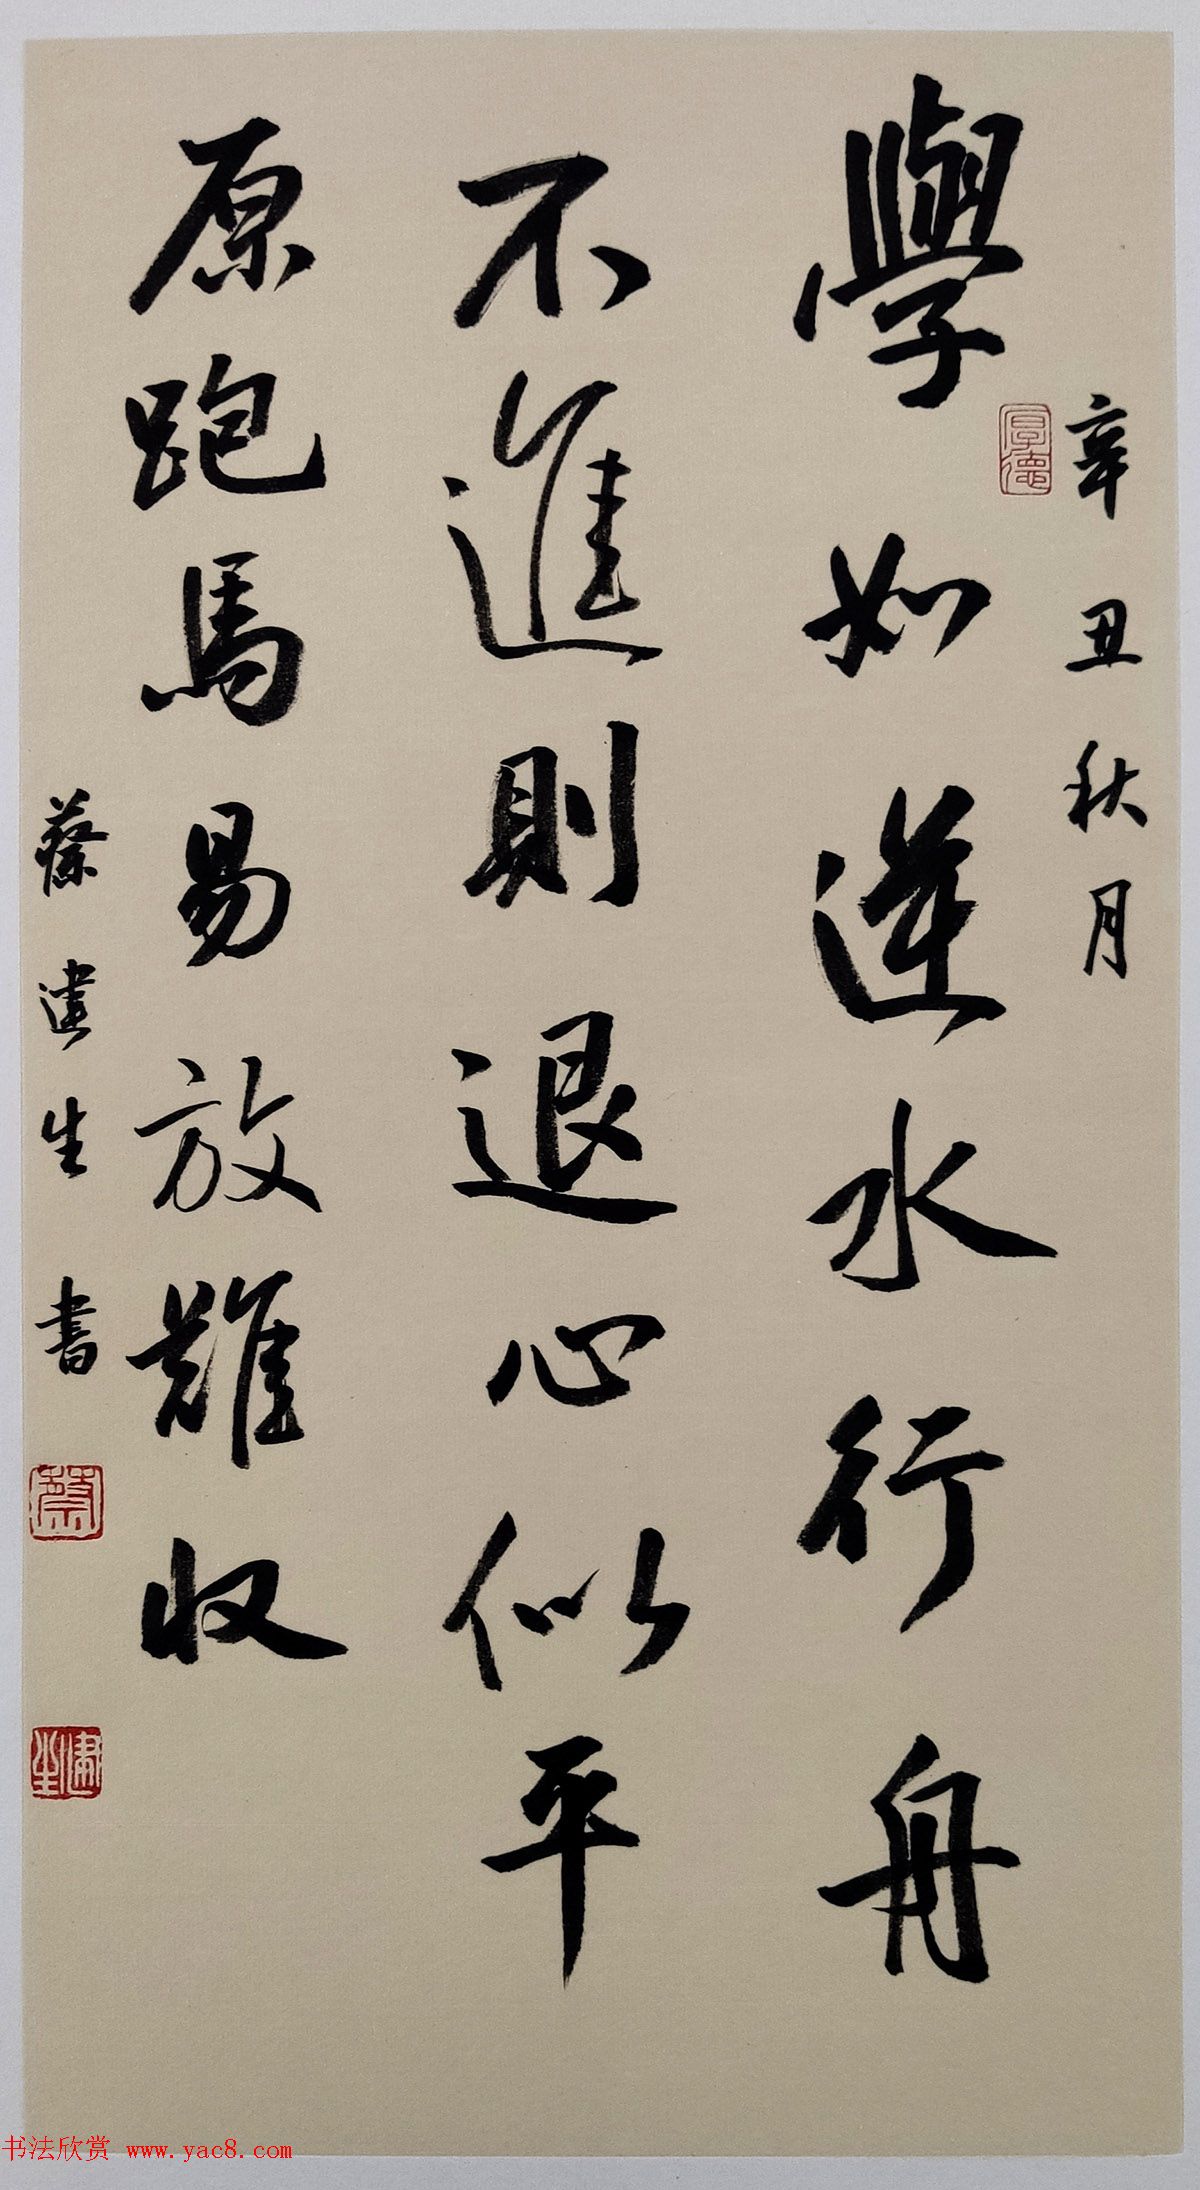 辛丑秋月
厚德
學如逆水行舟
不進則退心似平
原跑馬易放難收
蔡建生書
蔡
建生
书法欣赏 www.yac8.com